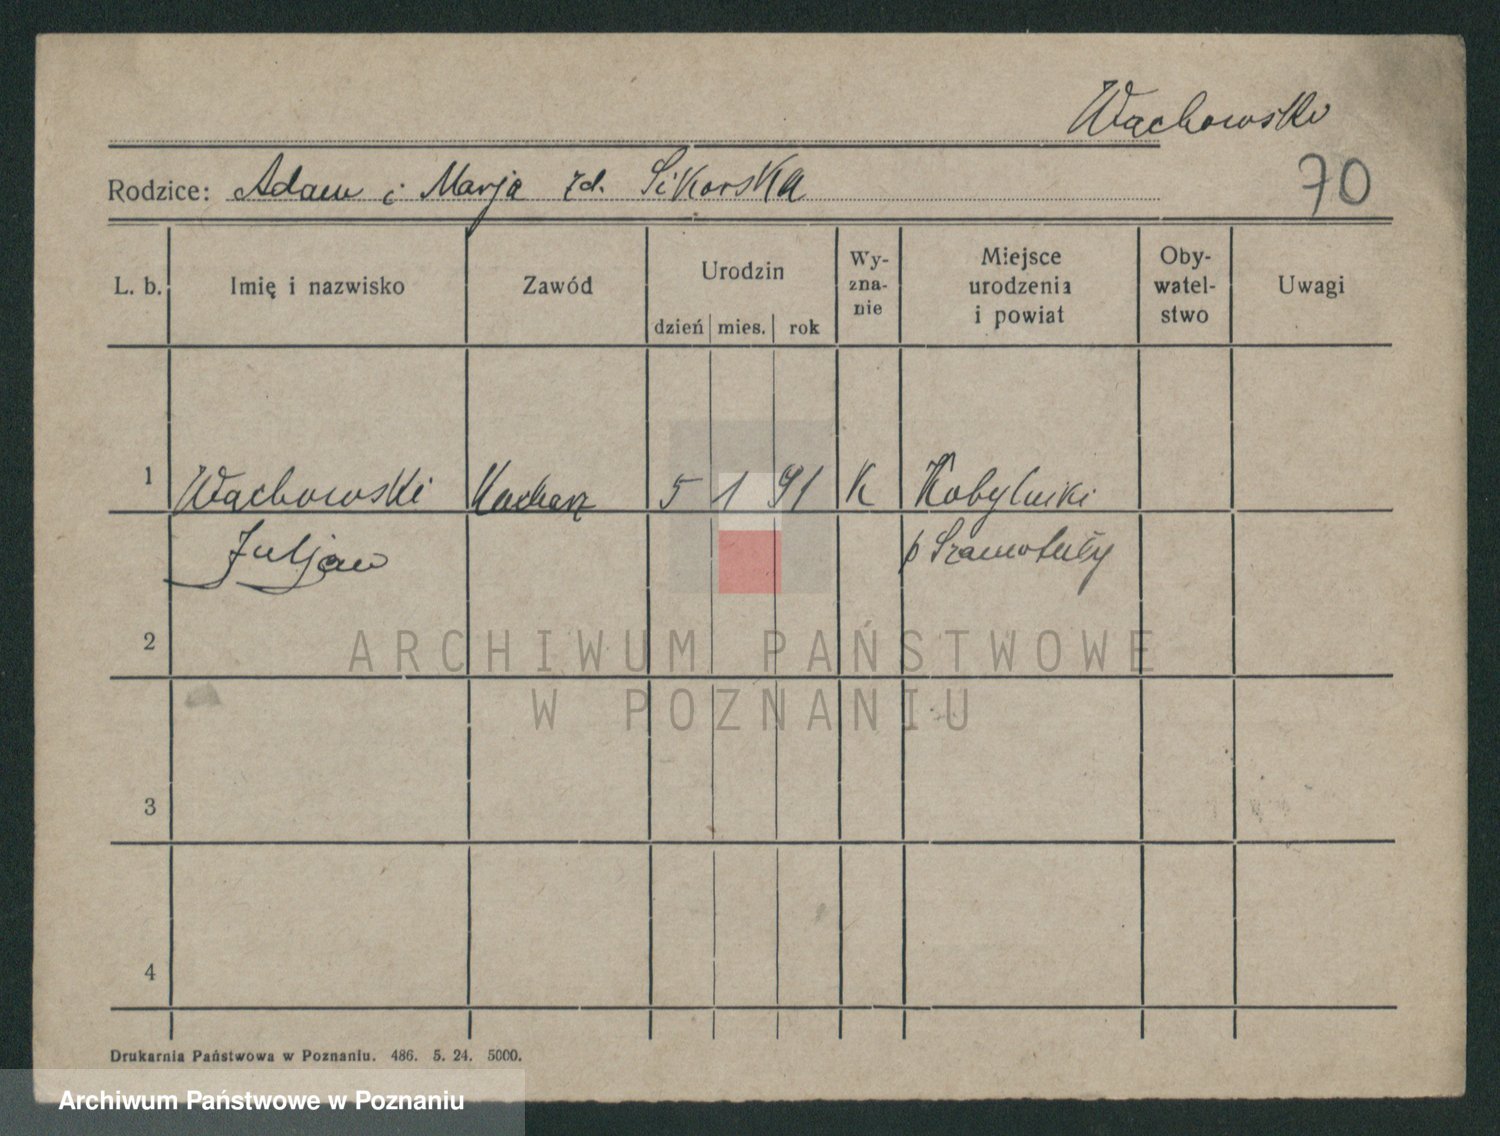 Wachowski
Rodzice: Adam i Marja zd. Sikorska
70
L. b. Imię i nazwisko Zawód Urodzin Wy-zna-nie Miejsce urodzenia i powiat Oby-watel-stwo Uwagi
dzień mies. rok
1 Wachowski Kucharz 5 1 91 K Kobylniki
Juljan p Szamotuły
2
3
4
ARCHIWUM PAŃSTWOWE
W POZNANIU
Drukarnia Państwowa w Poznaniu. 486. 5. 24. 5000.
Archiwum Państwowe w Poznaniu